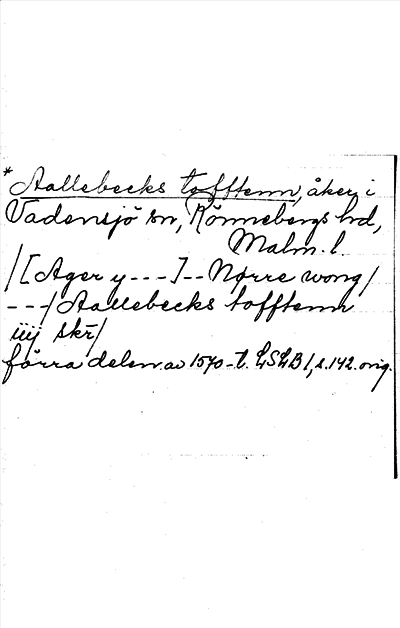 * Aallebecks tofftenn, åker i
Vadensjö sn, Rönnebergs hd,
Malm. l.
/[Ager y - - - ] - - Nørre wong/
- - - / Aallebecks tofftenn
iiij skr̄/
förra delen av 1570-t. LSLB 1, s. 142. orig.